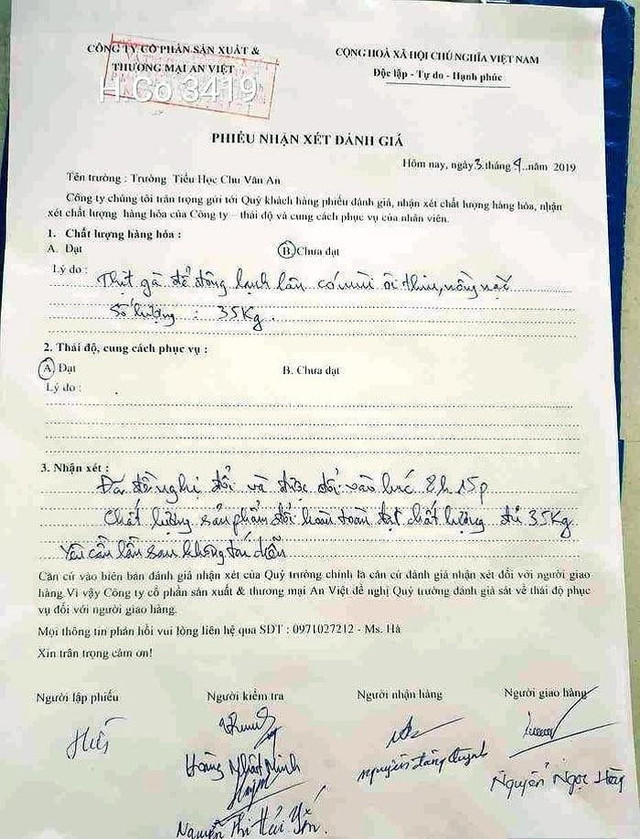 CÔNG TY CỔ PHẦN SẢN XUẤT &
THƯƠNG MẠI AN VIỆT
H.Co 3419
CỘNG HOÀ XÃ HỘI CHỦ NGHĨA VIỆT NAM
Độc lập - Tự do - Hạnh phúc
PHIẾU NHẬN XÉT ĐÁNH GIÁ
Hôm nay, ngày 3. tháng 9. năm 2019
Tên trường : Trường Tiểu Học Chu Văn An
Công ty chúng tôi trân trọng gửi tới Quý khách hàng phiếu đánh giá, nhận xét chất lượng hàng hóa, nhận
xét chất lượng hàng hóa của Công ty – thái độ và cung cách phục vụ của nhân viên.
1. Chất lượng hàng hóa :
A. Đạt B. Chưa đạt
Lý do : Thịt gà để đông lạnh lẫn có mùi ôi thiu, nồng nặc
Số lượng : 35Kg.
2. Thái độ, cung cách phục vụ :
A Đạt B. Chưa đạt
Lý do :
3. Nhận xét :
Đã đề nghị đổi và được đổi vào lúc 8h 15p
Chất lượng sản phẩm đổi hoàn toàn đạt chất lượng đủ 35Kg.
Yêu cầu lần sau không tái diễn
Căn cứ vào biên bản đánh giá nhận xét của Quý trường chính là căn cứ đánh giá nhận xét đối với người giao
hàng.Vì vậy Công ty cổ phần sản xuất & thương mại An Việt đề nghị Quý trường đánh giá sát về thái độ phục
vụ đối với người giao hàng.
Mọi thông tin phản hồi vui lòng liên hệ qua SĐT : 0971027212 - Ms. Hà
Xin trân trọng cảm ơn!
Người lập phiếu Người kiểm tra Người nhận hàng Người giao hàng
Hoàng Nhật Minh
Nguyễn Đăng Quỳnh
Nguyễn Ngọc
Nguyễn Thị Hải Yến.